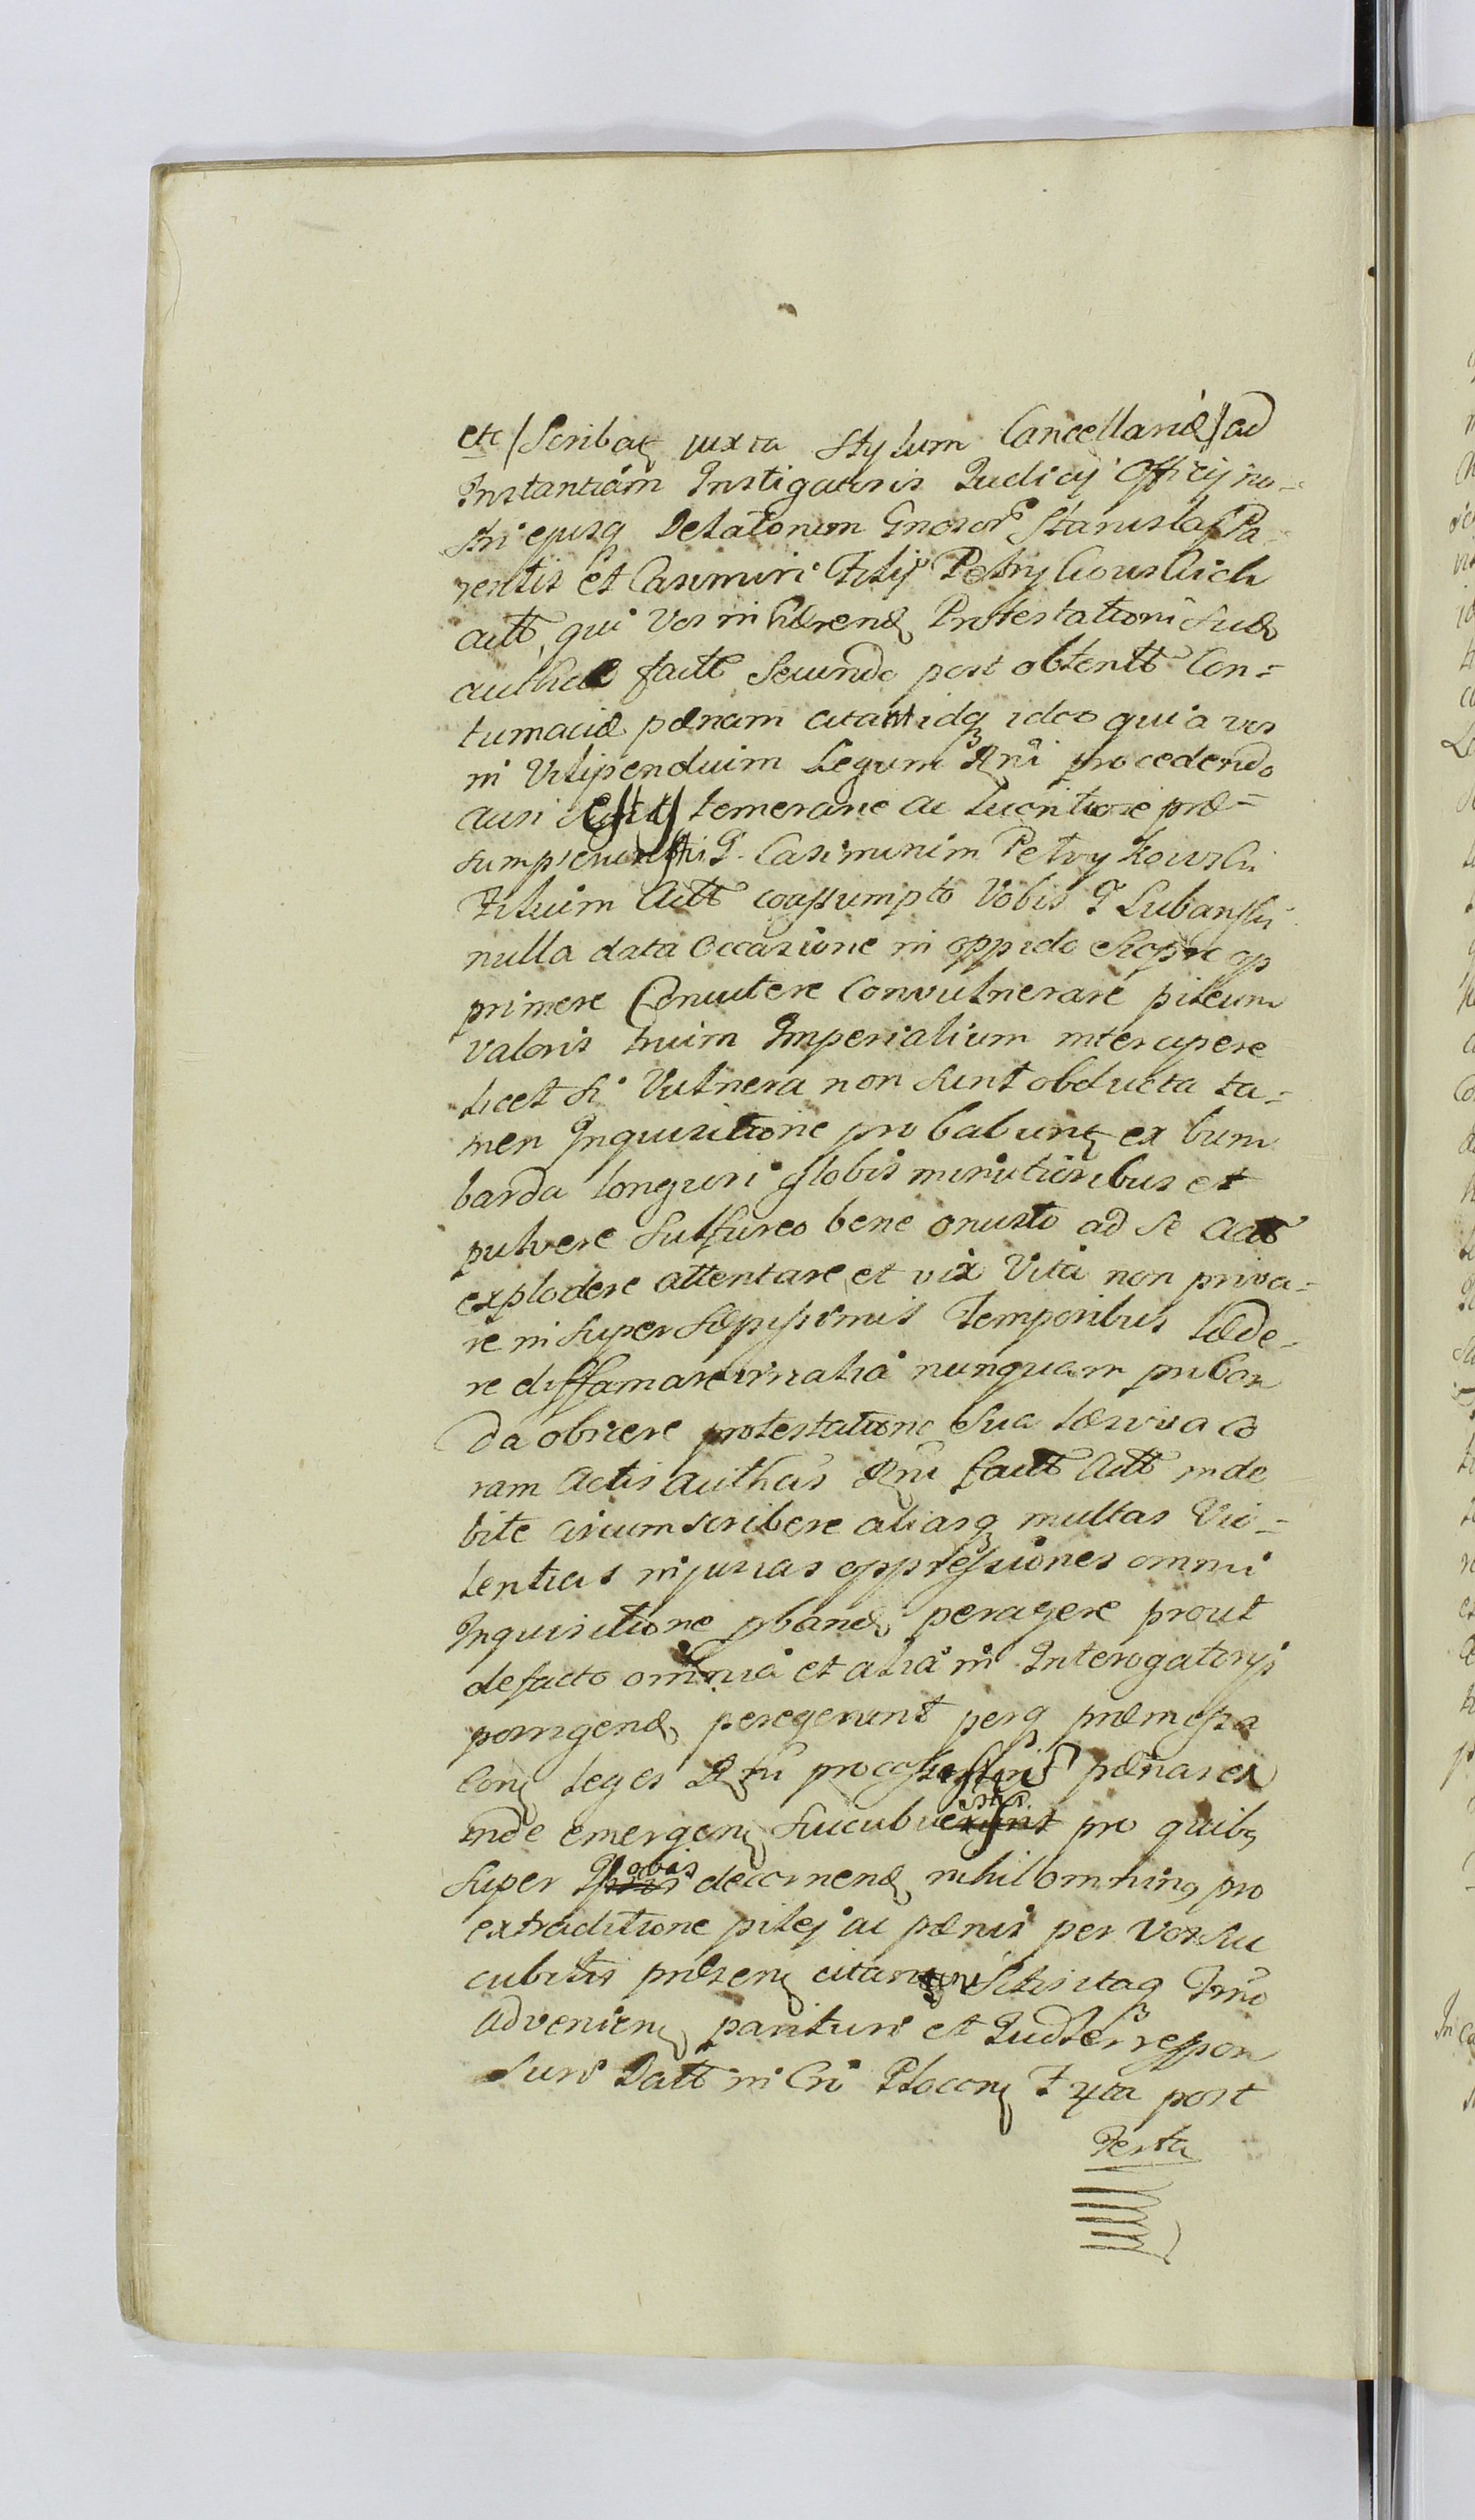 etc /Scribat juxta Stylum Cancellariæ/ ad
Instantiam Instigatoris Judicij Officij no-
stri ejusq Delatorum Gnosor Stanislai Pa-
rentis et Casimiri Filij Petrykowskich
actt, qui Vos inhærend Protestationi Suæ
authcæ factt Secundo post obtentt Con=
tumaciæ pænam citant idq ideo quia vos
in Vilipendium Legum Rni procedendo
ausi estis temerarie ac licentiose præ=
sumpsistis G. Casimirum Petrykowski
Filium Actt coassumpto Vobis G Lubanski
nulla data Occasione in oppido Sierpc op
primere Concutere Convulnerare pileum
valoris trium Imperialium intercipere
licet si Vulnera non sunt obducta ta-
men Inquisitione probabunt ex bom
barda longiori globis minutioribus et
pulvere Sulfureo bene onusto ad se actt
explodere attentare et vix Vita non priva-
re insuper sæpissimis Temporibus læde-
re diffamare irrealia nunquam proban
da obicere protestatione sua læsiva co
ram Actis authcis Rni factt Actt inde
bite circumscribere aliasq multas Vio-
lentias injurias oppressiones omni
Inquisitione pband peragere prout
defacto omnia et alia in Interogatorijs
porrigend peregerunt perq præmissa
Con leges Rni pænas ex
inde emergen succubu istis pro quibq
super Vobis decernend nihilominq pro
extraditione pilej ac pænis per Vos Suc
cubitis præsen citant Sitis itaq Tmno
advenien parituri et Judler respon
suri Datt in Cri Plocen F 4ta post
Festa